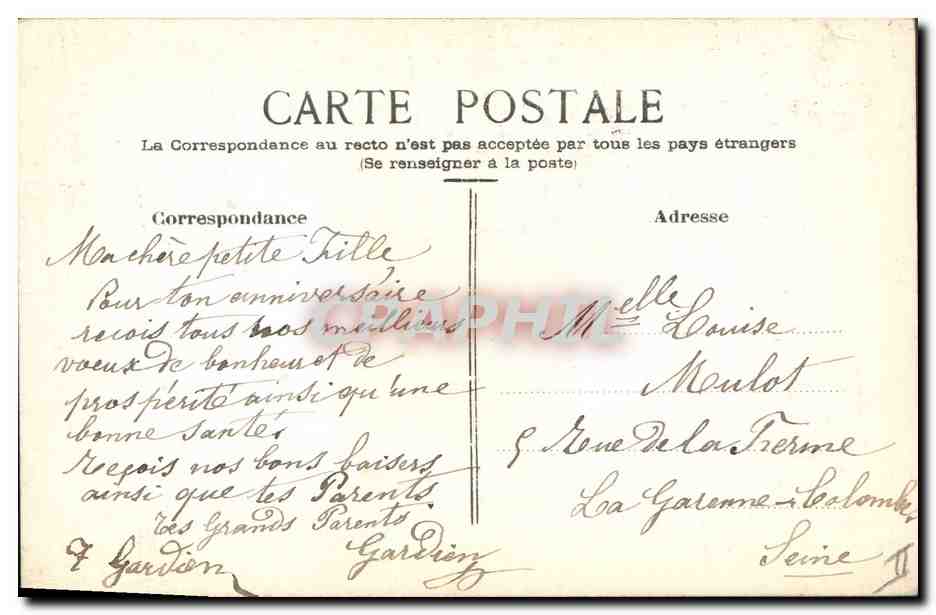 CARTE POSTALE
La Correspondance au recto n'est pas acceptée par tous les pays étrangers
(Se renseigner à la poste)
Correspondance
Ma chère petite Fille
Pour ton anniversaire
reçois tous nos meilleurs
voeux de bonheur et de
prospérité ainsi qu'une
bonne santé,
Reçois nos bons baisers
ainsi que tes Parents
Tes Grands Parents
Gardien
7 Gardien
Adresse
Melle Louise
Mulot
5 Rue de la Ferme
La Garenne-Colombes
Seine
CPAPHIL